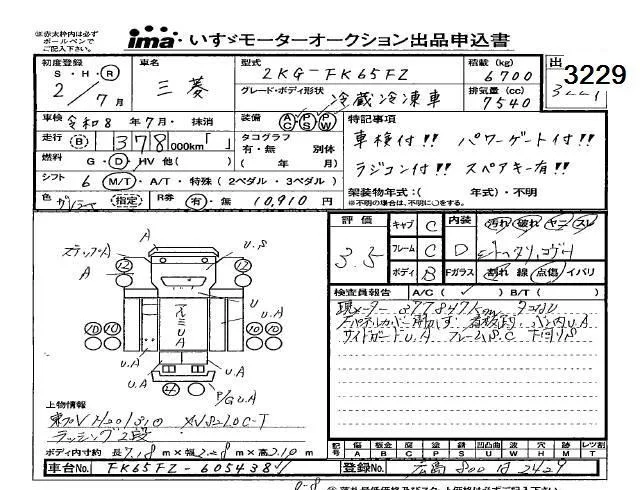 ※赤太枠内は必ず
ボールペンで
ご記入下さい。
ima・いすゞモーターオークション出品申込書
初度登録 S・H・R 2/7月
車名 三菱
型式 2KG-FK65FZ
積載 (kg) 6700
出 3229
グレード・ボディ形状 冷蔵冷凍車
排気量 (cc) 7540
車検 令和8年7月・抹消
装備 AC PS PW
特記事項
走行 B 378,000km「 」
タコグラフ 有・無 別体 ( 年 月)
車検付!! パワーゲート付!!
燃料 G・D・HV 他( )
ラジコン付!! スペアキー有!!
シフト 6 M/T・A/T・特殊 (2ペダル・3ペダル)
架装物年式:( 年式)・不明
※不明の場合は、不明に○をする。
色 (指定) R券 有・無 10,910円
評価 3.5
キャブ C 内装 汚れ 破れ ヤニ スレ
フレーム C D
ボディ B Fガラス 割れ 線 点傷 イバリ
検査員報告 A/C( ✓ ) B/T( )
現メーター 377847km
サイドガードU.A フレームS.C 下回りS
ステップA A U.S
12 12
U
A
10 10 アルミ U A 10 10
U.A U.A
U.A 4 P/G U.A
上物情報
ラッシング2段
ボディ内寸約 長7.18m×幅2.28m×高2.10m
記号 傷 A 板金 B 腐 C 塗 P 錆 S 凹凸曲 U 波 W 穴 H 跡 M 補 T レツ割
車台No. FK65FZ-605438
登録No. 広島 800 は 2429